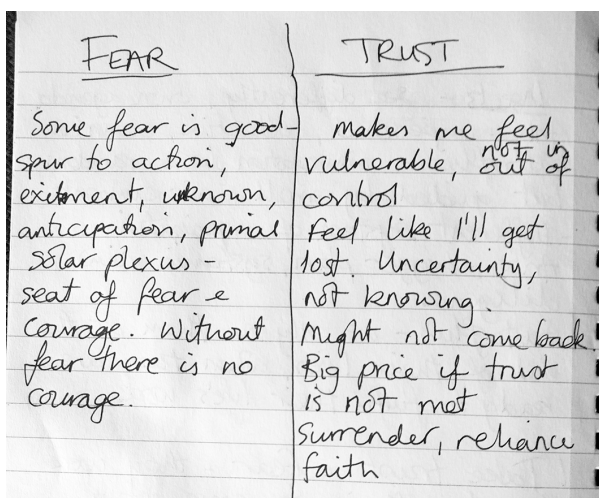 FEAR
Some fear is good-
spur to action,
exitment, unknown,
anticipation, primal
solar plexus -
seat of fear &
courage. Without
fear there is no
courage.
TRUST
makes me feel
vulnerable, not in
out of
control
Feel like I'll get
lost. Uncertainty,
not knowing.
Might not come back.
Big price if trust
is not met
surrender, reliance
faith